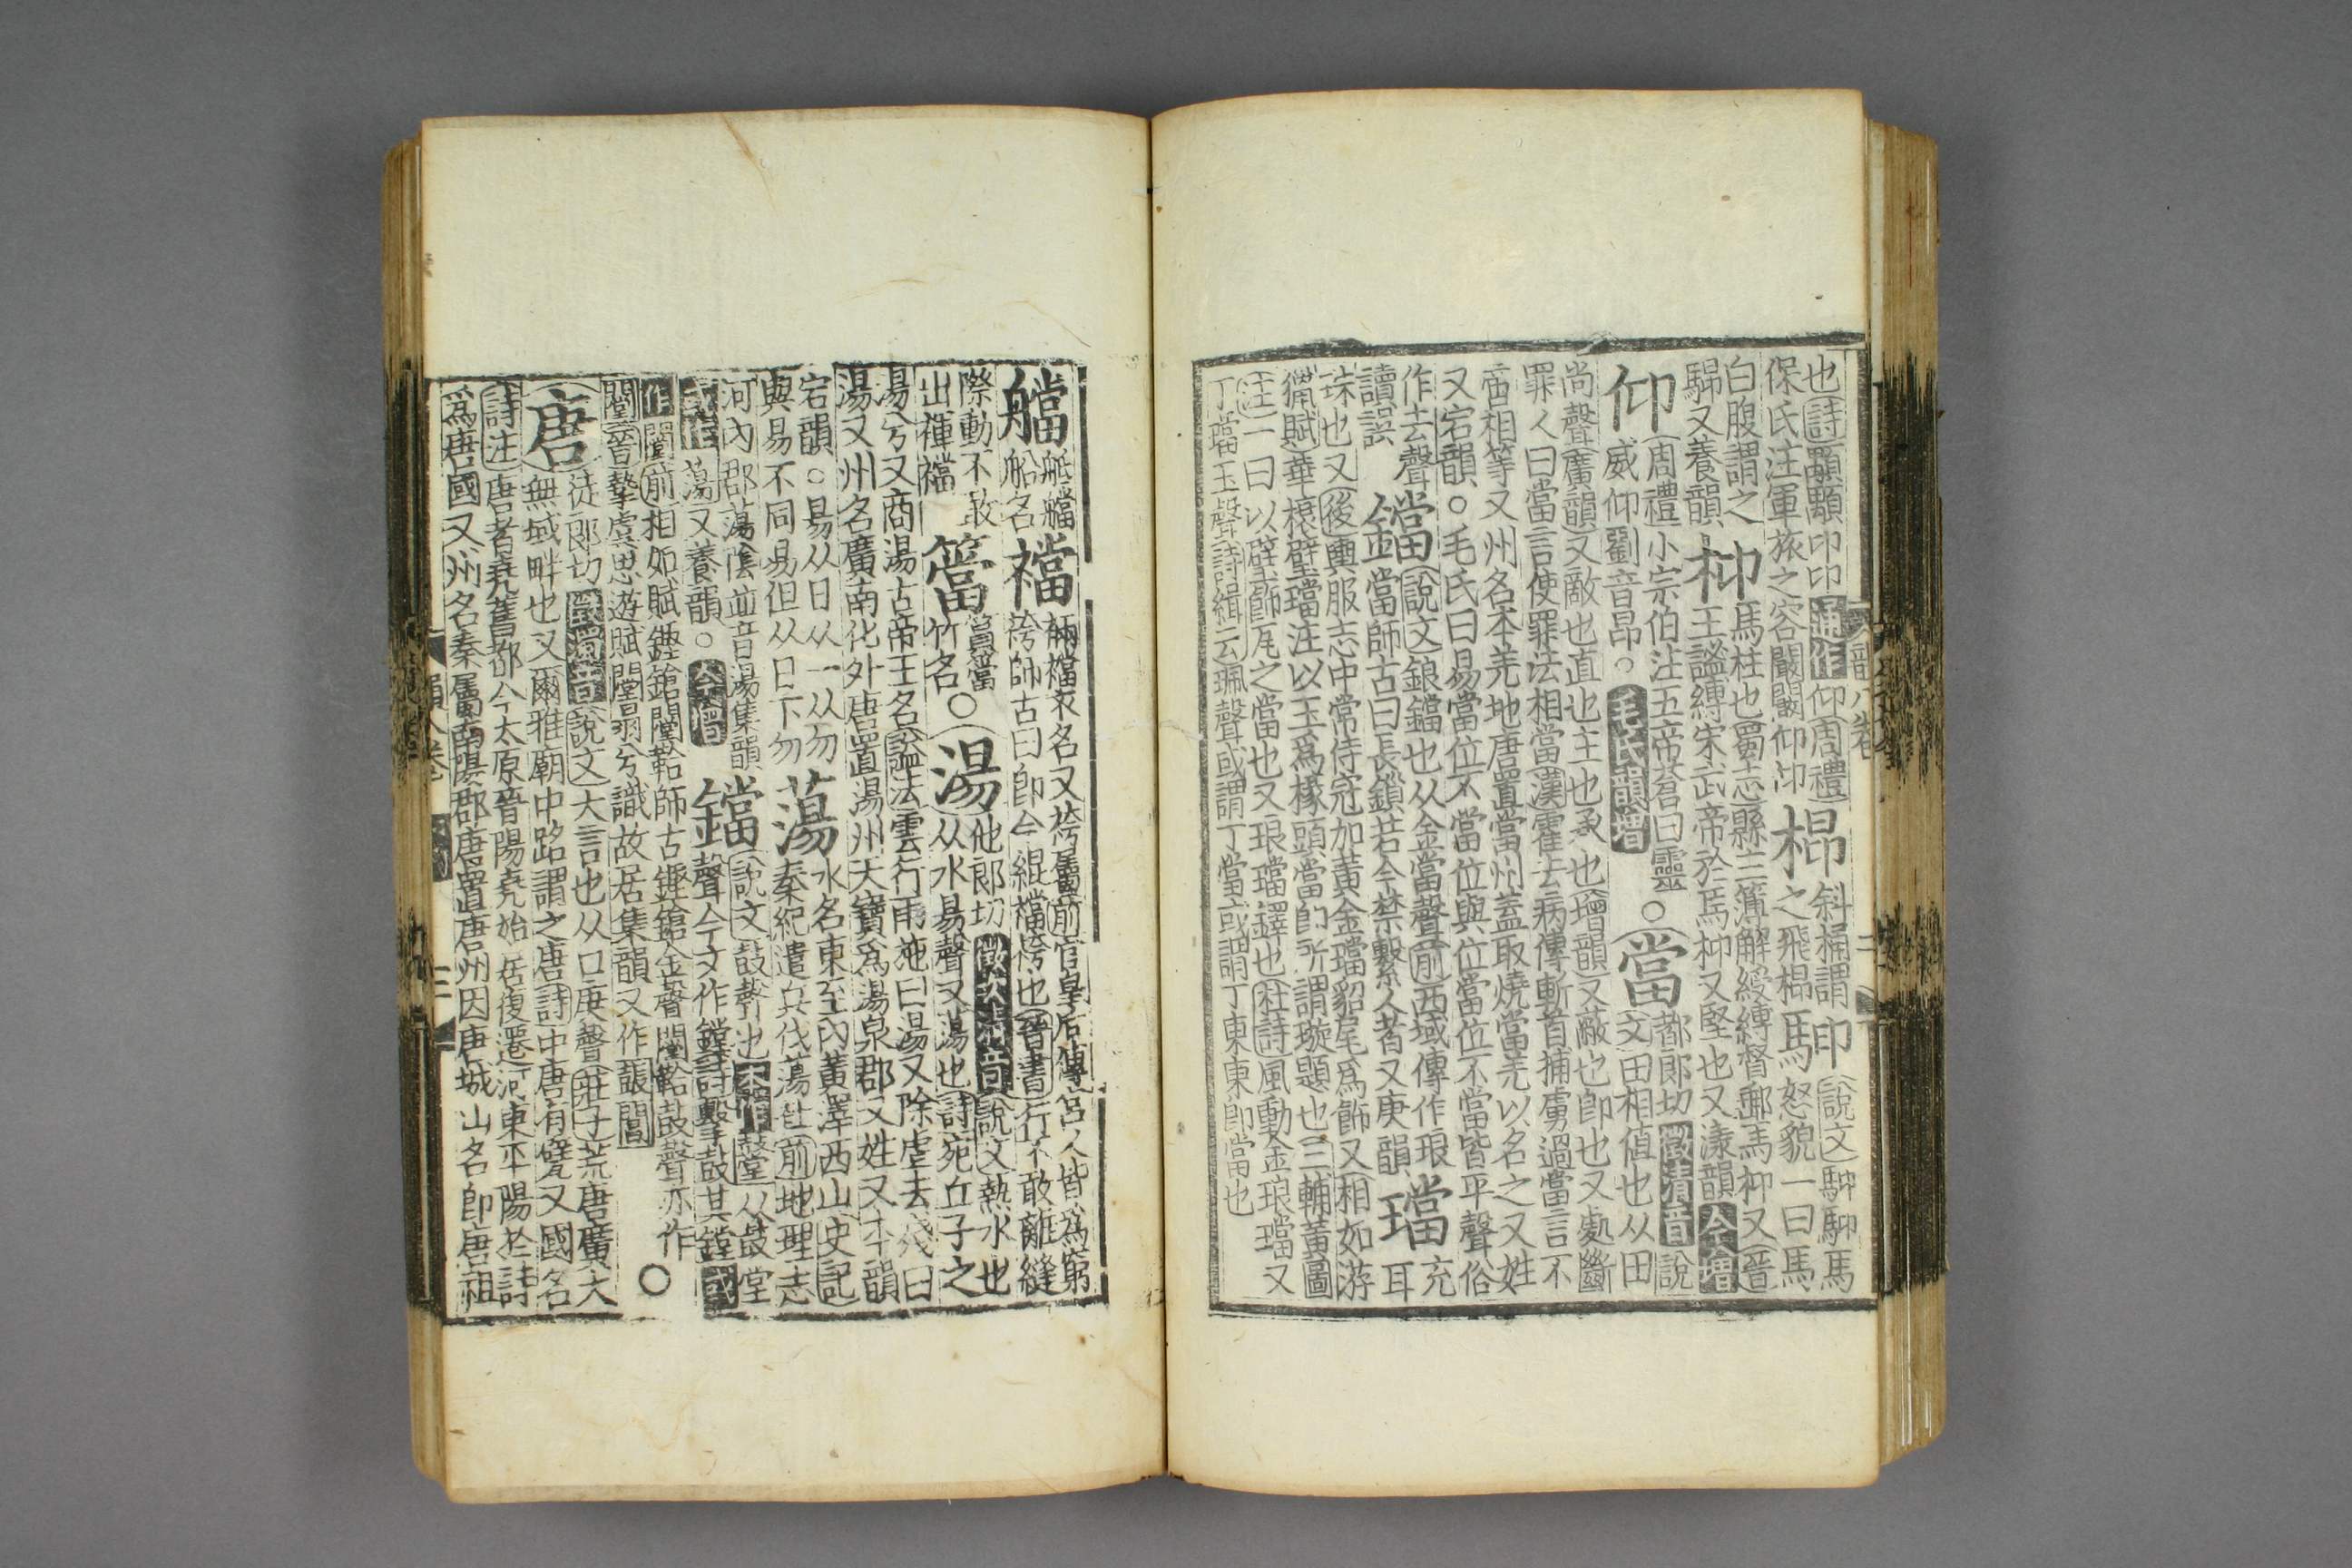 也(詩)顒顒卬卬通作仰(周禮)
保氏注軍旅之容闞闞仰仰
枊斜桷謂
之飛枊
(說文)馬
怒貌一曰馬
白腹謂之
又養韻
枊馬柱也(蜀志)縣主簿解綬縛督郵馬枊又(晉)
王謐縛宋武帝於馬枊又堅也又漾韻今增
仰(周禮)小宗伯注五帝蒼曰靈
威仰劉音昂○毛氏韻增
○當都郎切徵清音說
(文)田相値也从田
尚聲(廣韻)又敵也直也主也承也(增韻)又蔽也卽也又處斷
罪人曰當言使罪法相當(漢)霍去病傳斬首捕虜過當言不
啻相等又州名本羌地唐置當州蓋取燒當羌以名之又姓
又宕韻○毛氏曰易當位不當位與位當位不當皆平聲俗
作去聲
讀誤
鐺(說文)鋃鐺也从金當聲(前)西域傳作琅
當師古曰長鎖若今禁繫人者又庚韻
璫充
耳
珠也又(後)輿服志中常侍冠加黃金璫貂尾爲飾又(相如游
獵賦)華榱璧璫注以玉爲椽頭當卽所謂璇題也(三輔黃圖
注)一曰以璧飾瓦之當也又琅璫鐸也(杜詩)風動金琅璫又
丁璫玉聲詩緝云珮聲或謂丁當或謂丁東東卽當也
艡艇艡
船名
襠裲襠衣名又袴屬(前)官皇后傳宮人皆爲窮
袴師古曰卽今緄襠袴也(晉書)行不敢離縫
際動不敢
出褌襠
簹篔簹
竹名○
湯他郎切徵次淸音(說文)熱水也
从水昜聲又蕩也(詩)宛丘子之
湯兮又商湯古帝王名(謚法)雲行雨施曰湯又除虐去殘曰
湯又州名廣南化外唐置湯州天寶爲湯泉郡又姓又本韻
宕韻○昜从日从一从勿
與易不同易但从日下勿
蕩水名東至內黃澤西山(史記)
秦紀遣兵伐蕩社(前)地理志
河內郡蕩隂並音湯集韻
或作蕩又養韻○今增
鐺(說文)鼓聲也本作鼞从鼓堂
聲今文作鏜詩擊鼓其鏜或
作闛(前)相如賦鏗鎗闛鞈師古鏗鎗金聲闛鞈鼓聲亦作
闛(晉)摯虞思遊賦闛兮識故居集韻又作閶○
唐徒郎切徵濁音(說文)大言也从口庚聲(莊子)荒唐廣大
無域畔也又(爾雅)廟中路謂之唐(詩)中唐有甓又國名
(詩注)唐者堯舊都今太原晉陽堯始居後遷河東平陽於詩
爲唐國又州名秦屬南陽郡唐置唐州因唐城山名卽唐祖